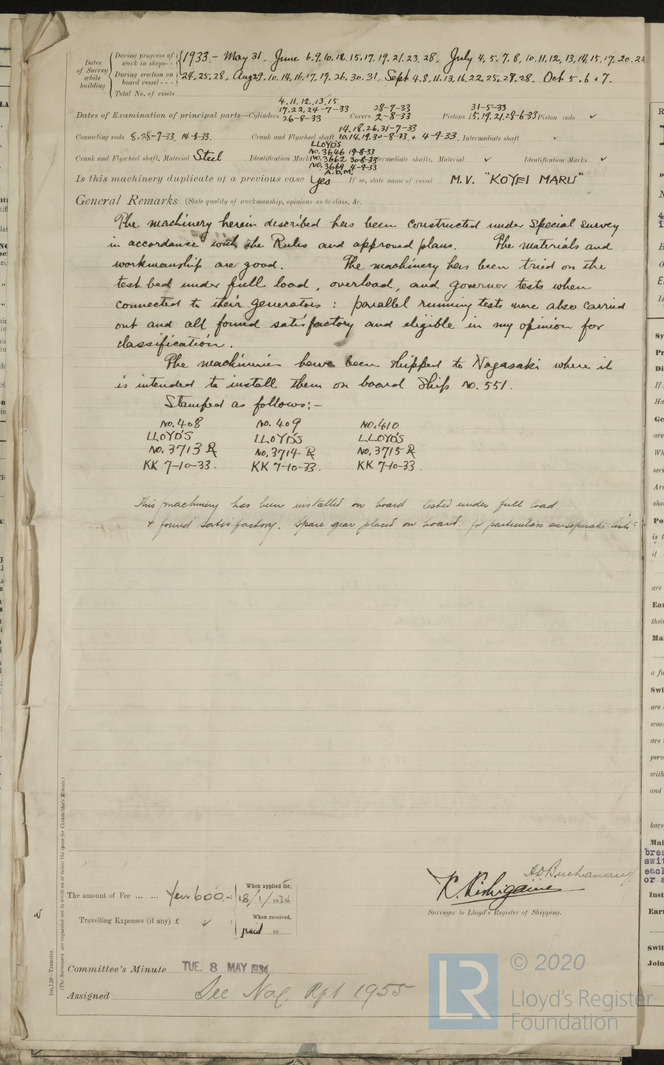 Dates of Survey while building
During progress of work in shops - - 1933 - May 31, June 6.9.10.12.15.17.19.21.23.28, July 4.5.7.8.10.11.12.13.14.15.17.20.
During erection on board vessel - - - 24.25.28, Aug 10.14.16.17.19.26.30.31, Sept 4.8.11.13.16.22.25.27.28. Oct 5.6.7.
Total No. of visits
Dates of Examination of principal parts—Cylinders 4.11.12.13.15 17.22.24-7-33 26-8-33 Covers 28-7-33 2-8-33 Pistons 31-5-33 15.19.21.28-6-33 Piston rods ✓
Connecting rods 8.28-7-33, 14-8-33. Crank and Flywheel shaft 14.18.26.31-7-33 10.14.19.30-8-33. + 4-9-33. Intermediate shaft ✓
Crank and Flywheel shaft, Material Steel Identification Mark LLOYDS No. 3646 19-8-33 No. 3662 30-8-33 No. 3669 4-9-33 A.D.B. Intermediate shafts, Material ✓ Identification Marks ✓
Is this machinery duplicate of a previous case Yes If so, state name of vessel M.V. "KOYEI MARU"
General Remarks (State quality of workmanship, opinions as to class, &c.
The machinery herein described has been constructed under Special Survey
in accordance with the Rules and approved plans. The materials and
workmanship are good. The machinery has been tried on the
test bed under full load, overload, and governor tests when
connected to their generators : parallel running tests were also carried
out and all found satisfactory and eligible in my opinion for
classification.
The machineries have been shipped to Nagasaki where it
is intended to install them on board Ship No. 551.
Stamped as follows:-
No. 408 No. 409 No. 410
LLOYD'S LLOYD'S LLOYD'S
No. 3713 R No. 3714 R No. 3715 R
KK 7-10-33. KK 7-10-33. KK 7-10-33.
This machinery has been installed on board tested under full load
+ found satisfactory. Spare gear placed on board. for particulars see separate list
The amount of Fee ... ... Yen 600 - When applied for, 18/1/1934
Travelling Expenses (if any) £ ✓ When received, paid 19
A.D. Buchanan
K. Kishigami
Surveyor to Lloyd's Register of Shipping.
Committee's Minute TUE. 8 MAY 1934
Assigned See Nag. Rpt 1955
(The Surveyors are requested not to write on or below the space for Committee's Minute.)
© 2020
LR Lloyd's Register
Foundation